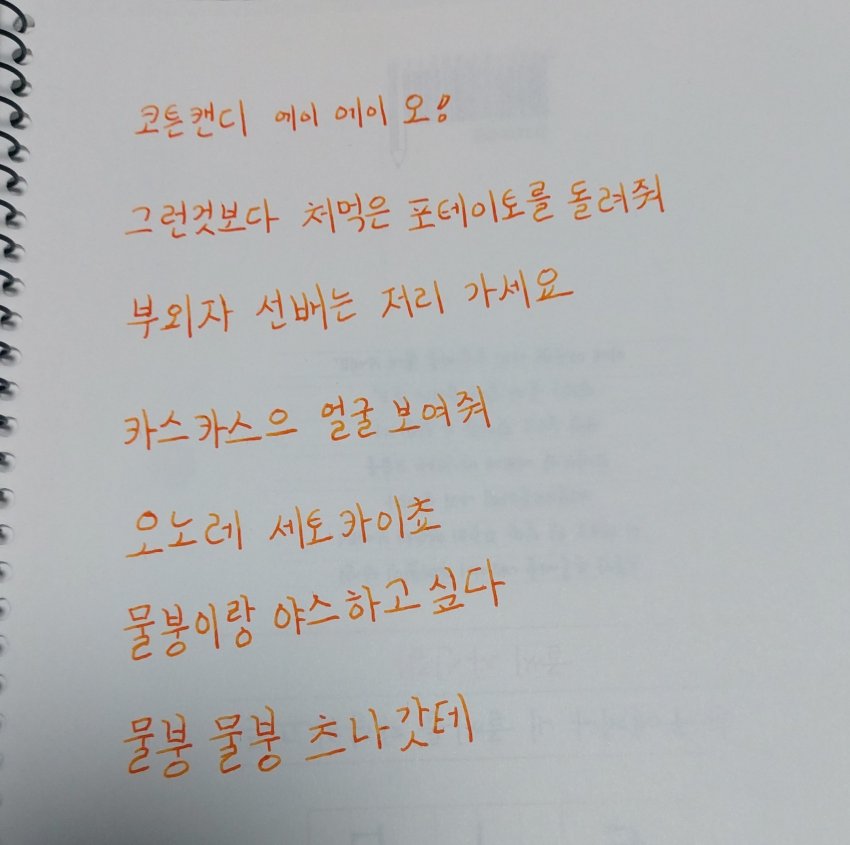 코튼캔디 에이 에이 오!
그런것보다 처먹은 포테이토를 돌려줘
부외자 선배는 저리 가세요
카스카스으 얼굴 보여줘
오노레 세토카이쵸
물붕이랑 야스하고싶다
물붕 물붕 츠나갓테